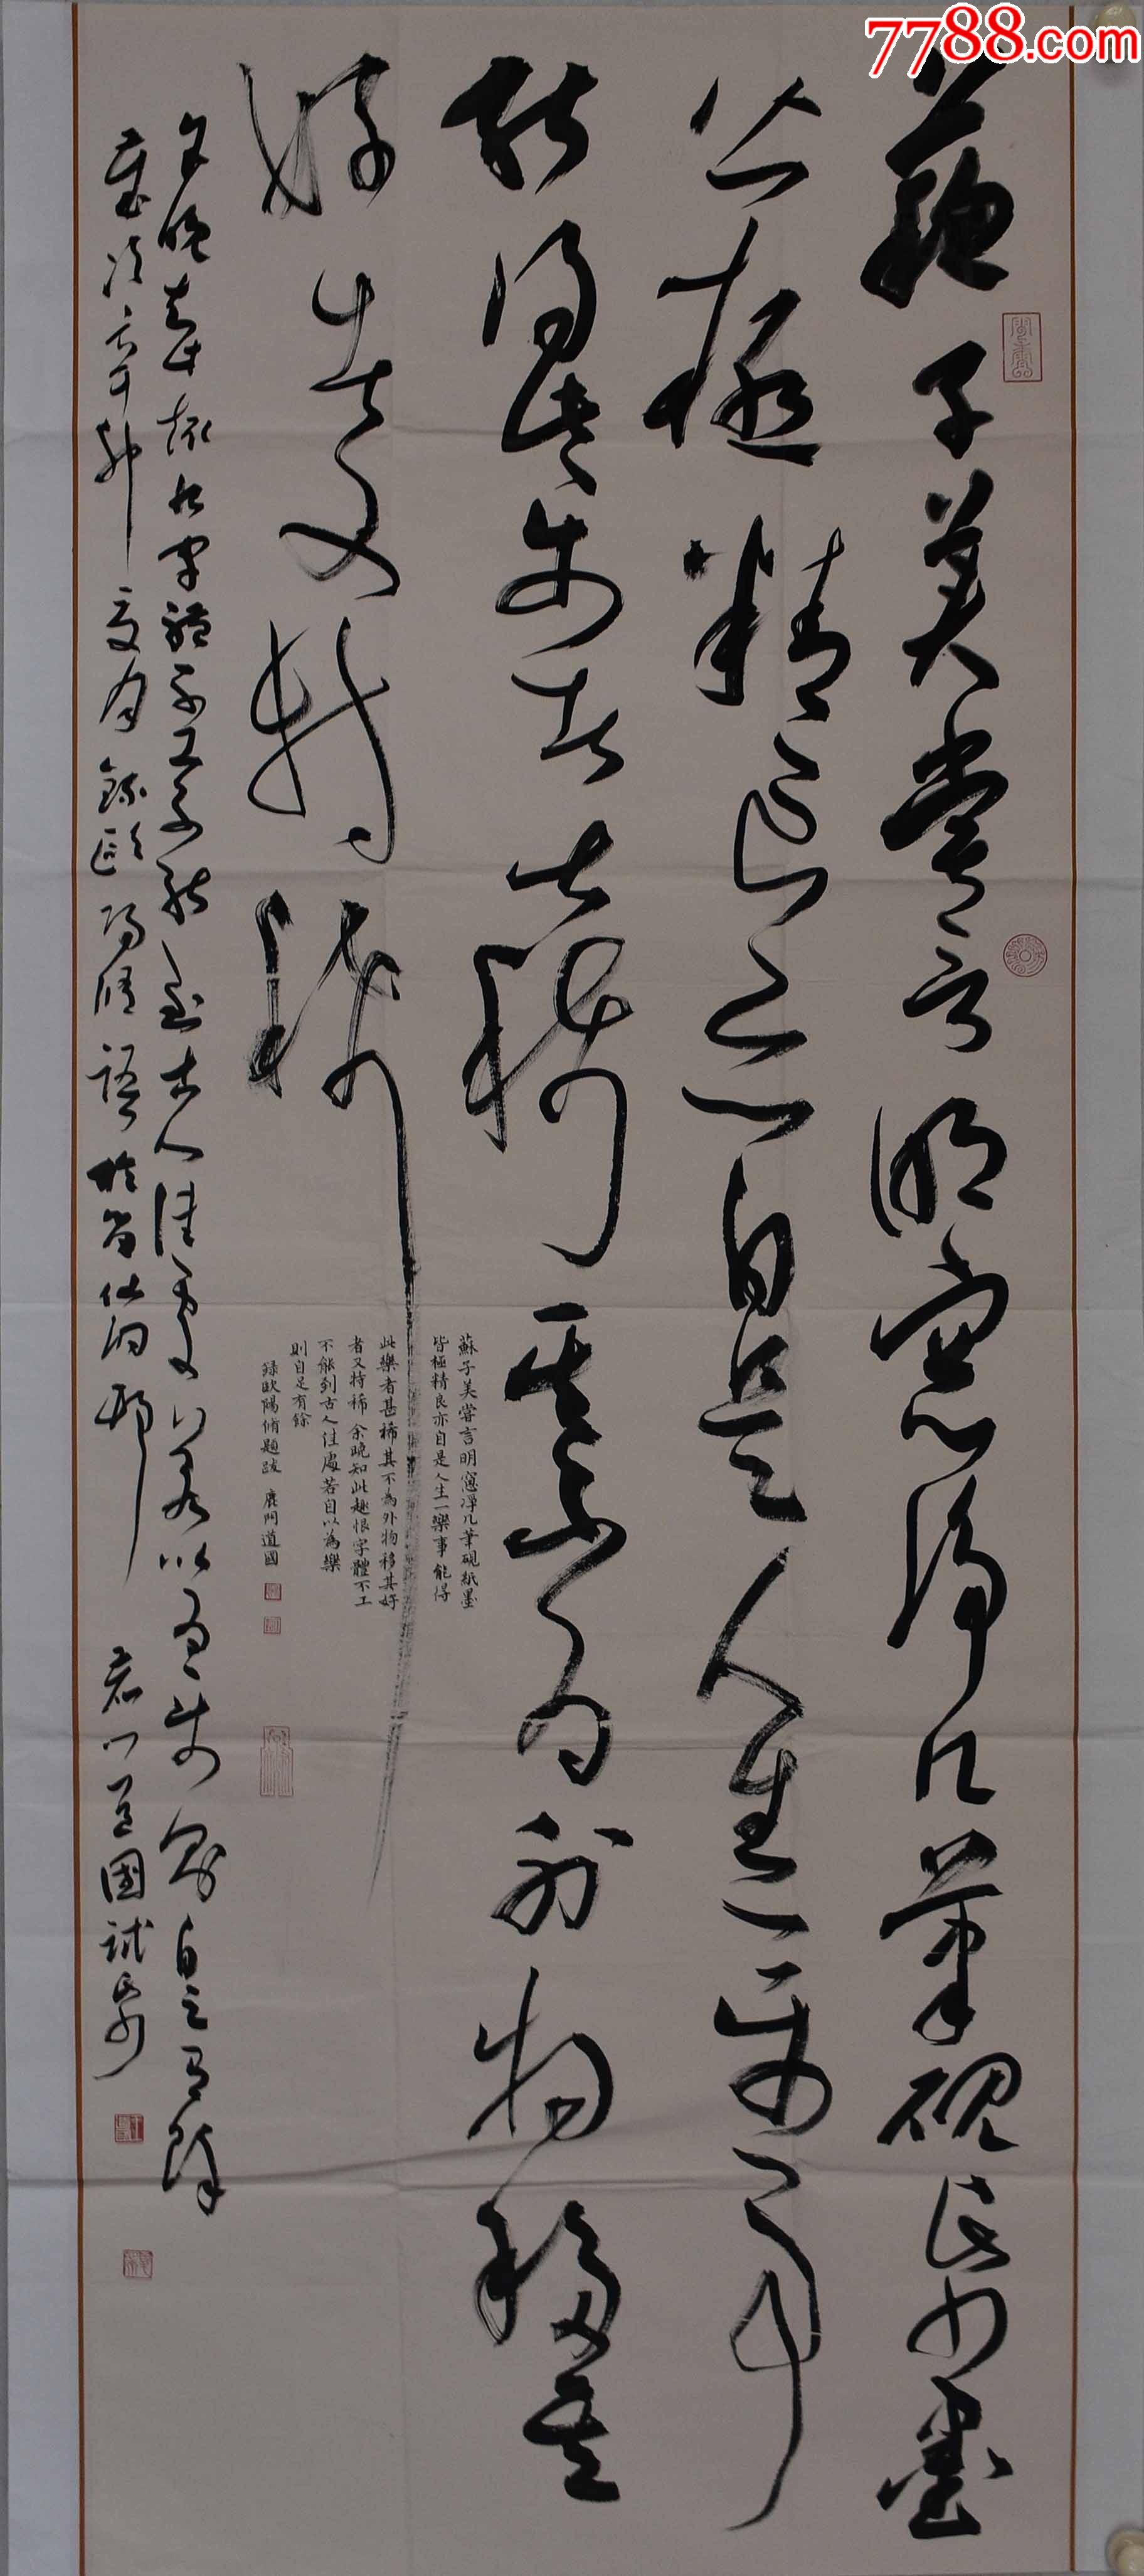 7788.com
蘇子美嘗言明窓淨几筆硯紙墨
皆極精良亦自是人生一樂事
能得此樂者甚稀其不為外物移其
好者又特稀
余晚知此趣恨字體不工不能到古人佳處若以為樂則自足有餘
歲次 錄歐陽脩語於 鹿門道國試紙
蘇子美嘗言明窻淨几筆硯紙墨
皆極精良亦自是人生一樂事能得
此樂者甚稀其不為外物移其好
者又特稀余晚知此趣恨字體不工
不能到古人佳處若自以為樂
則自足有餘
録歐陽脩題跋 鹿門道國